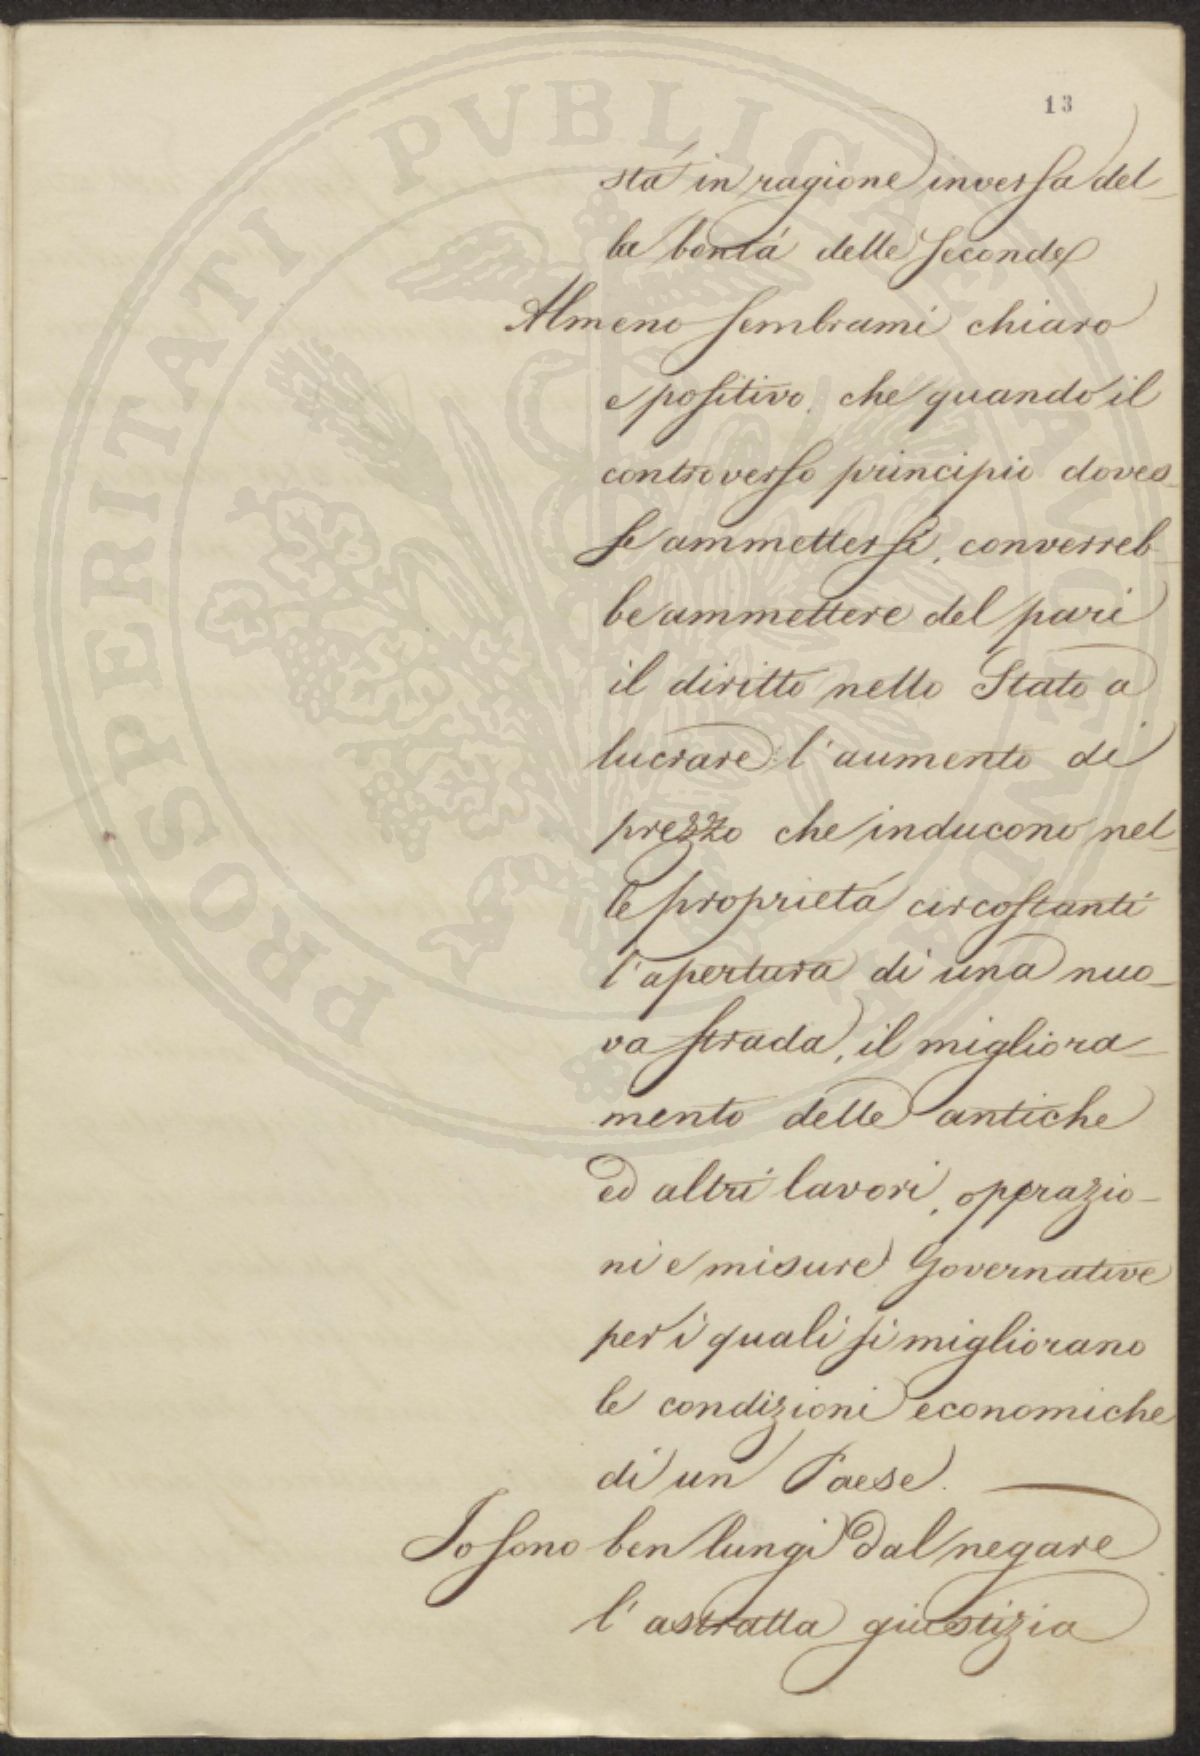 13
stá in ragione inversa del-
la bontá delle seconde
Almeno sembrami chiaro
e positivo, che quando il
controverso principio doves-
se ammettersi, converreb-
be ammettere del pari
il diritto nello Stato a
lucrare l'aumento di
prezzo che inducono nel-
le proprietá circostanti
l'apertura di una nuo-
va strada, il migliora-
mento delle antiche
ed altri lavori, operazio-
ni e misure Governative
per i quali si migliorano
le condizioni economiche
di un Paese.
Io sono ben lungi dal negare
l'astratta giustizia
PROSPERITATI PVBLICAE AVGENDAE